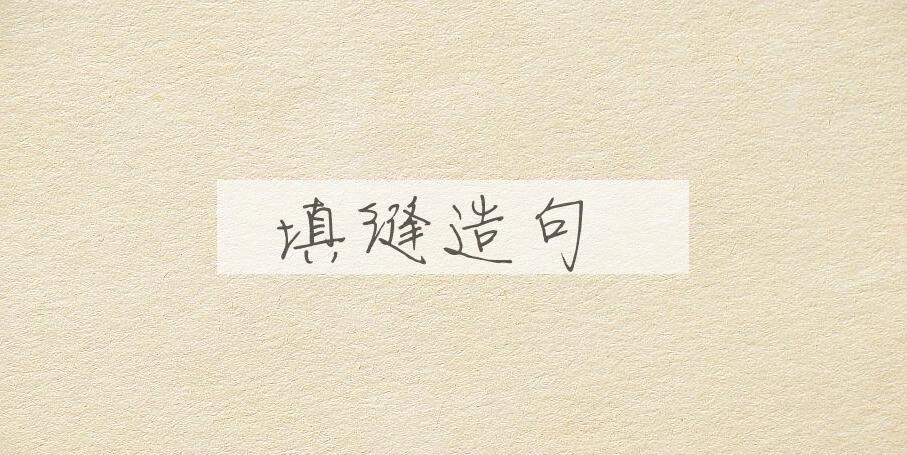 填缝造句